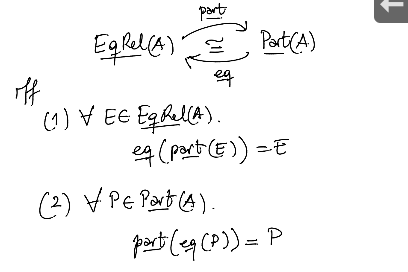 part
EqRel(A) ≅ Part(A)
eq
iff
(1) ∀ E∈ EqRel(A).
eq(part(E)) = E
(2) ∀ P∈ Part(A).
part(eq(P)) = P